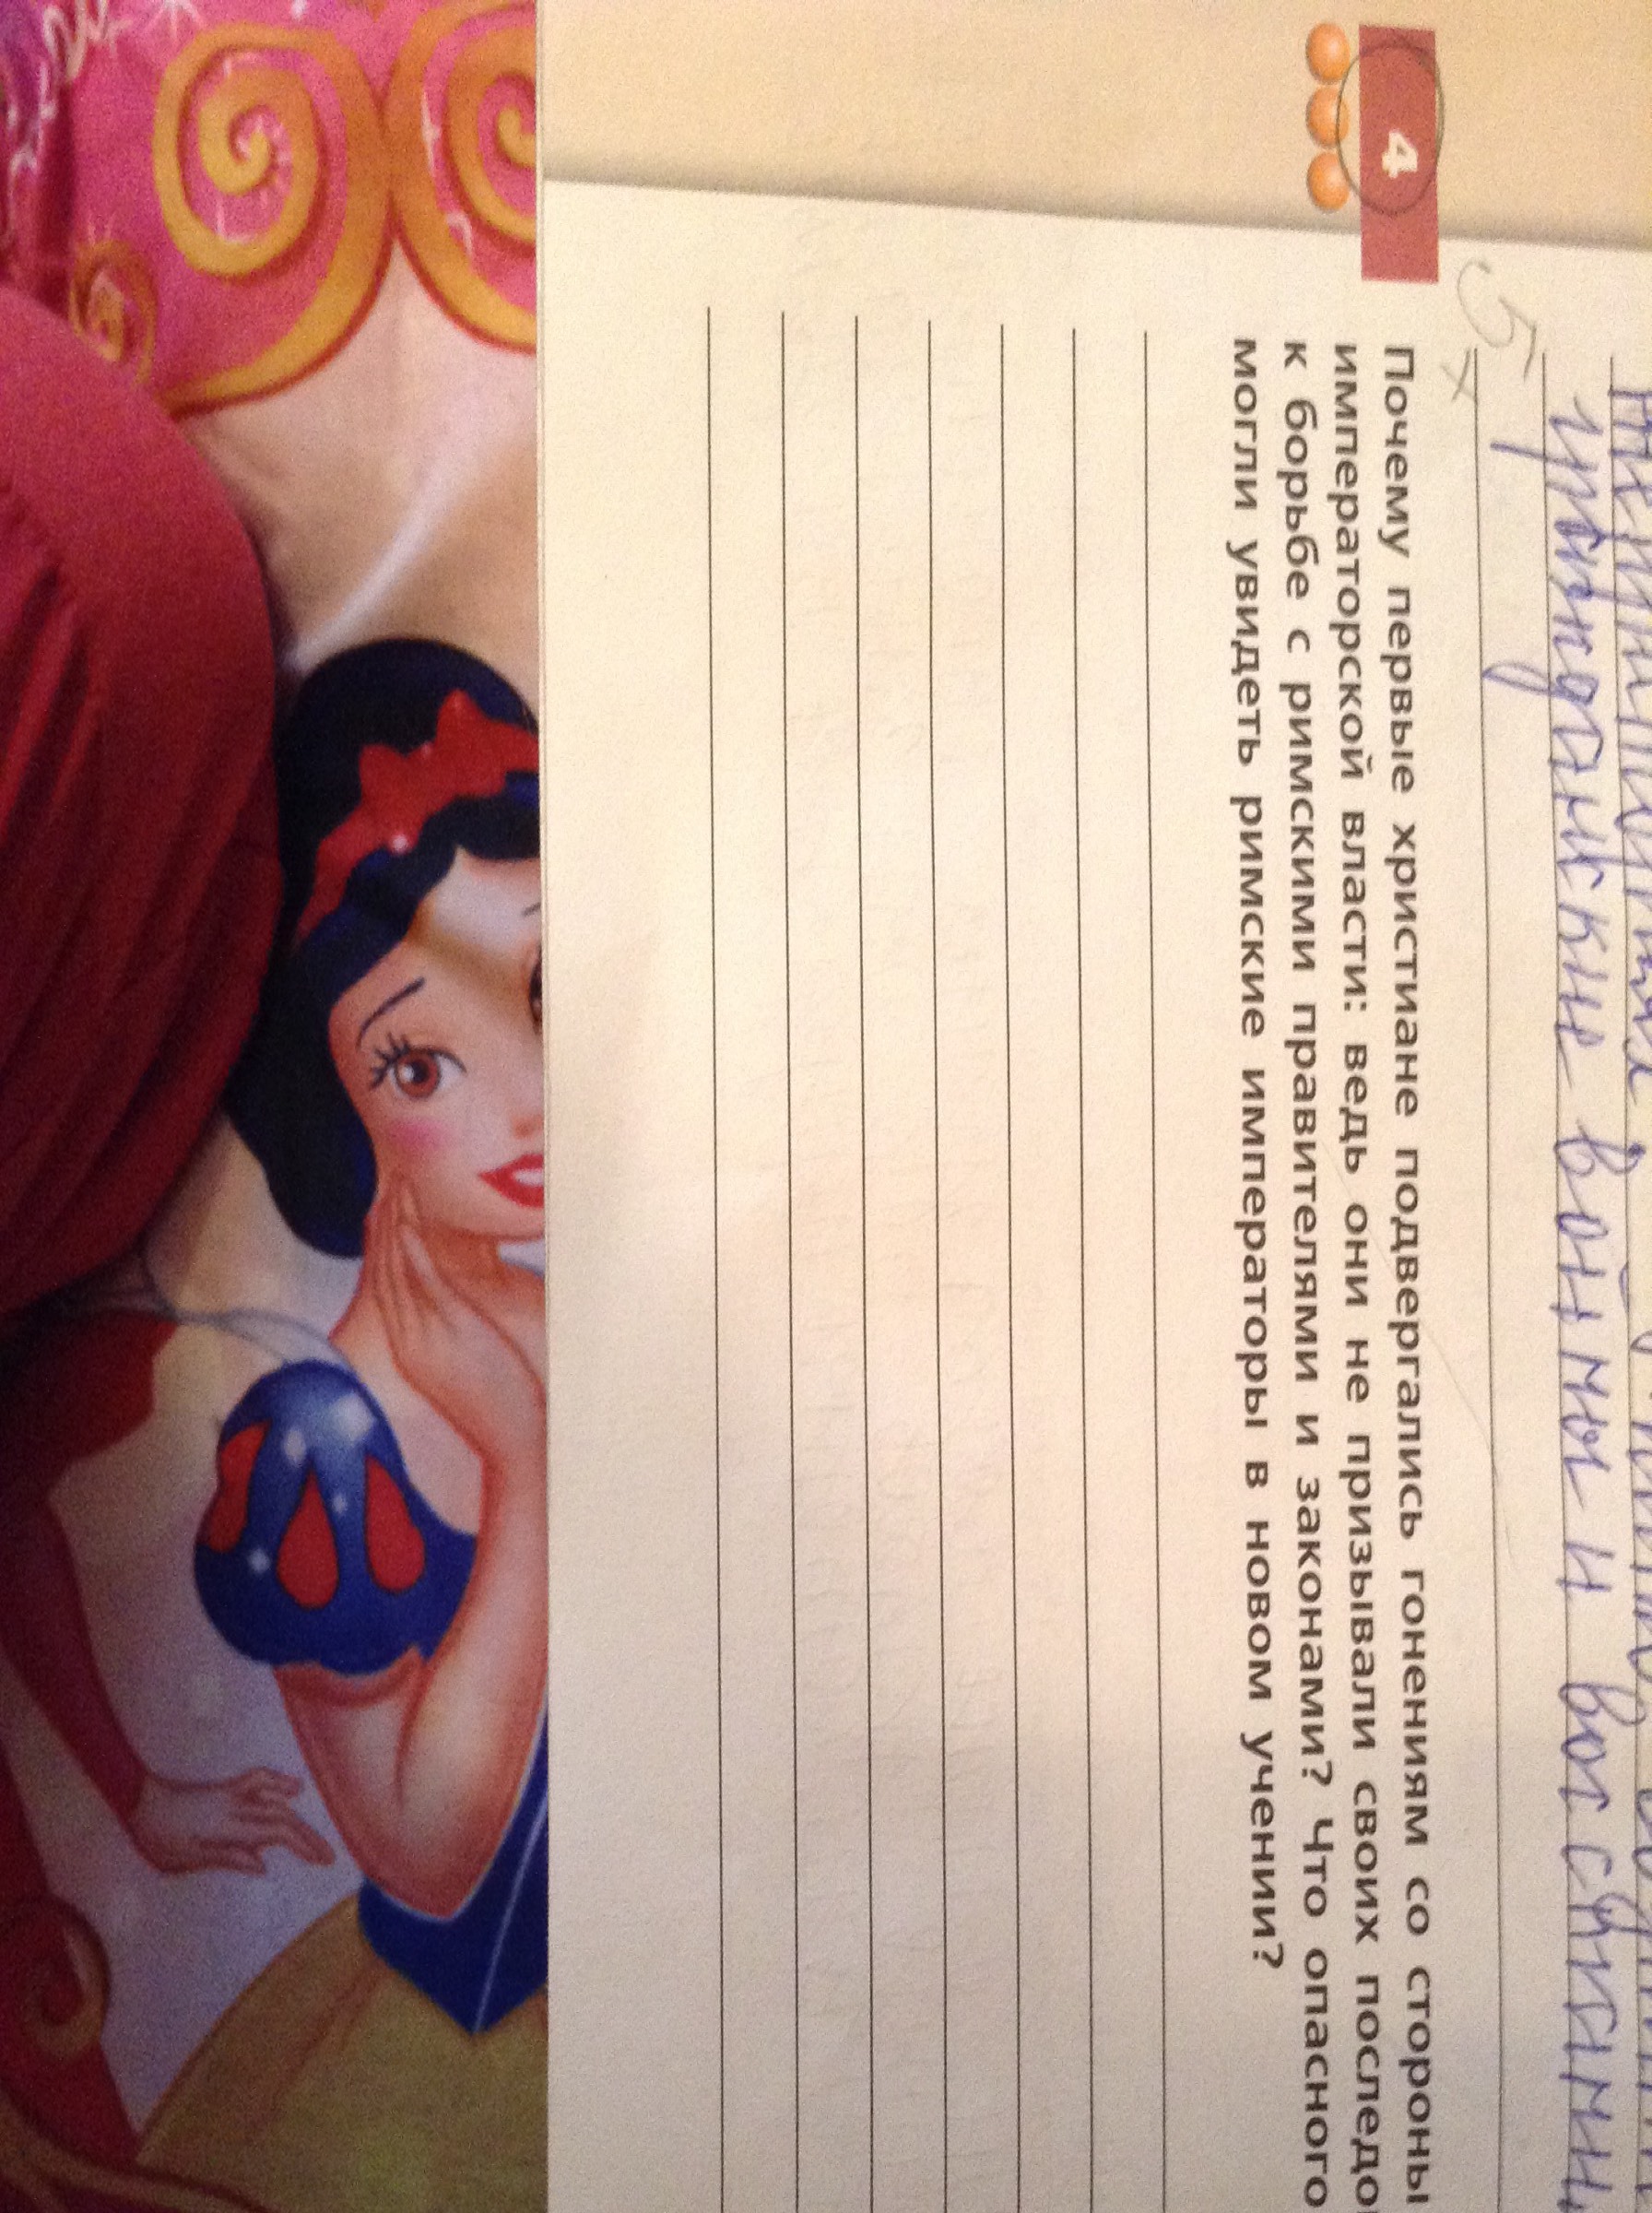 гражданские войны и восстания,
4
Почему первые христиане подвергались гонениям со стороны
императорской власти: ведь они не призывали своих последо
к борьбе с римскими правителями и законами? Что опасного
могли увидеть римские императоры в новом учении?